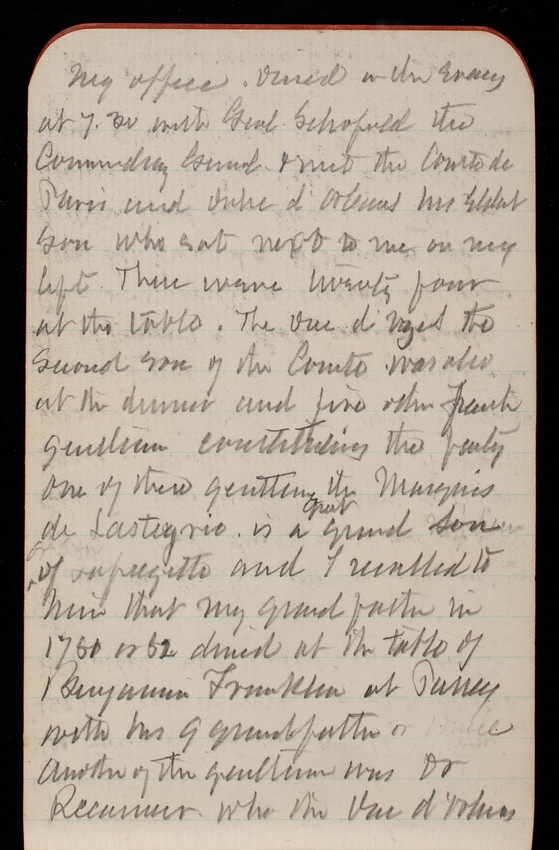 My office. Dined in the Evening
at 7.30 with Genl Schofield the
Commdng Genral & met the Comte de
Paris and Duke d Orleans his Eldest
Son who sat next to me on my
left. There were twenty four
at the table. The Duc d'Uzes the
Second Son of the Comte was also
at the dinner and five other French
gentlemen constituting the party
One of these gentlemen the Marquis
de Lasteyrie is a great grand son
of Lafayette and I recalled to
him that my grand father in
1780 or 82 dined at the table of
Benjamin Franklin at Passy
with his G grandfather or
Another of the gentlemen was Dr
Recamier who the Duc d'Orleans